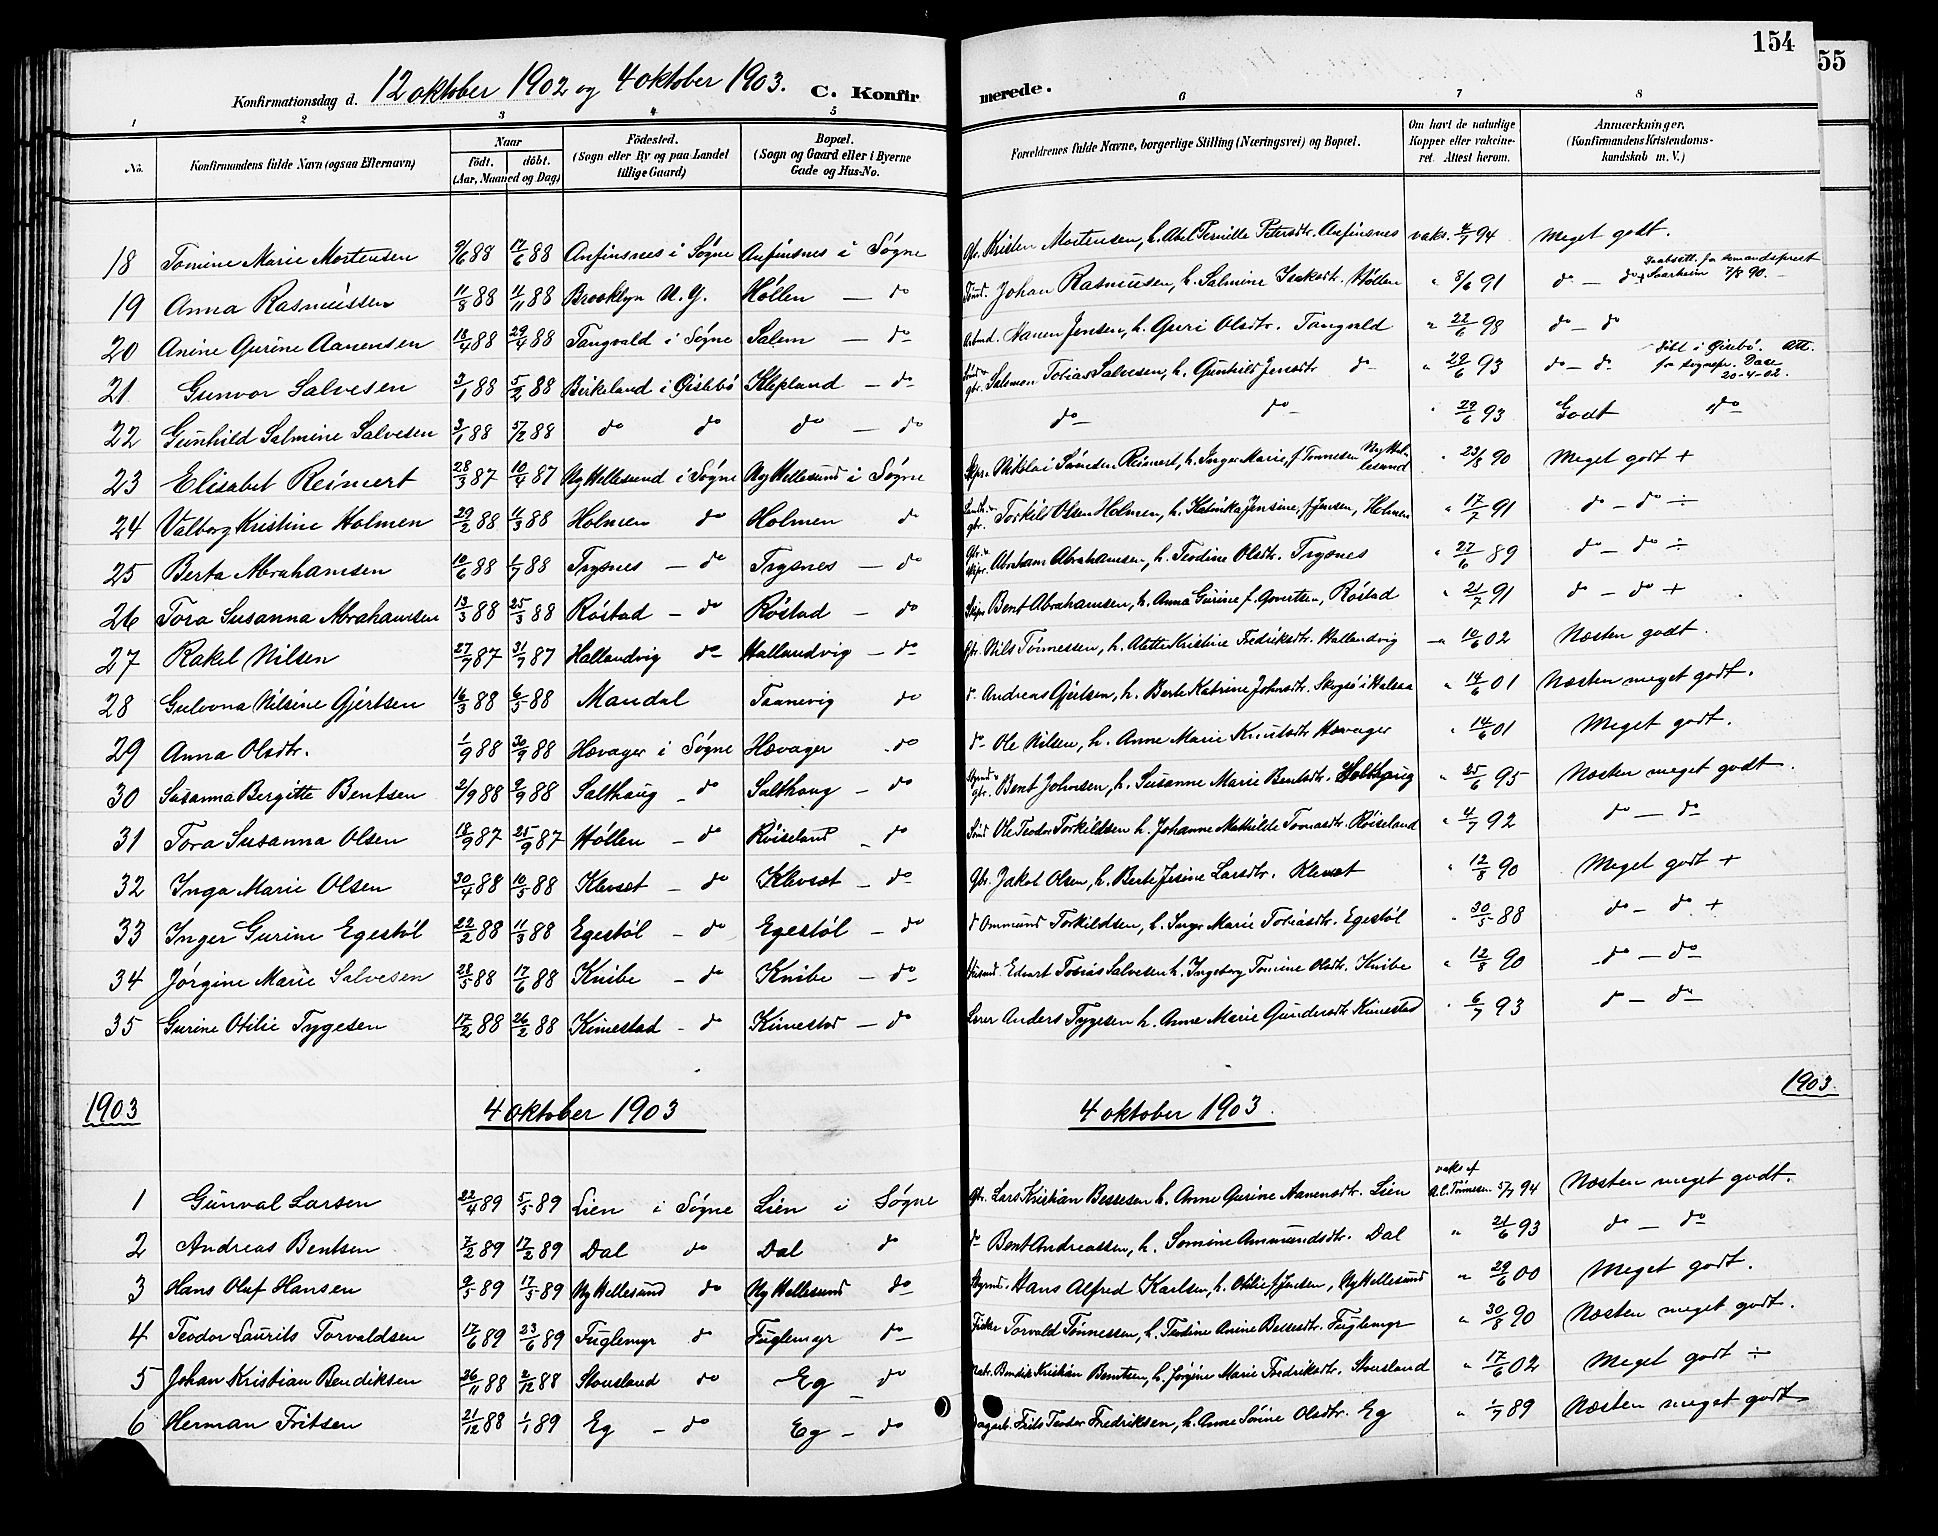 154
55
Konfirmationsdag d. 12 oktober 1902 og 4 oktober 1903. C. Konfirmerede.
1 2 3 4 5 6 7 8
No. Konfirmandens fulde Navn (ogsaa Efternavn) Naar födt. döbt. (Aar, Maaned og Dag) Födested. (Sogn eller By og paa Landet tillige Gaard) Bopæl. (Sogn og Gaard eller i Byerne Gade og Hus-No. Forældrenes fulde Navne, borgerlige Stilling (Næringsvei) og Bopæl. Om havt de naturlige Kopper eller vakcineret. Attest herom. Anmærkninger. (Konfirmandens Kristendomskundskab m. V.)
18 Tomine Marie Mortensen 9/6 88 17/6 88 Anfinsnes i Søgne Anfinsnes i Søgne Kristen Mortensen, h. Abel Pernille Petersdtr. Anfinsnes vaks. 4/7 94 Meget godt.
19 Anna Rasmussen 11/8 88 11/11 88 Brooklyn N.Y. Høllen - do Johan Rasmussen, h. Salmine Isaksdtr. Høllen " 8/6 91 do - do 7/8 90
20 Anine Gurine Aanensen 18/4 88 29/4 88 Tangvald i Søgne Salem - do Aanen Jensen, h. Guri Olsdtr. Tangvald " 22/6 98 do - do
21 Gunvor Salvesen 3/1 88 5/2 88 Birkeland i Øislebø Klepland - do Salomon Tobias Salvesen, h. Gunhild Jensdtr do " 29/6 93 do - do døbt i Øislebø. Att. fra sognepr. Daae 20-4-02.
22 Gunhild Salmine Salvesen 3/1 88 5/2 88 do do do - do do do " 29/6 93 Godt do
23 Elisabet Reimert 28/3 87 10/4 87 Ny Hellesund i Søgne Ny Hellesund i Søgne Skpr. Nikolai Svendsen Reimert, h. Inger Marie, f. Tønnesen Ny Hellesund " 23/8 90 Meget godt +
24 Valborg Kristine Holmen 29/2 88 11/3 88 Holmen do Holmen do gbr. Torkild Olsen Holmen, h. Katinka Jensine, f. Jensen, Holmen " 17/7 91 do - do ÷
25 Berta Abrahamsen 10/6 88 1/7 88 Trysnes - do Trysnes - do Abraham Abrahamsen, h. Teodine Olsdtr. Trysnes " 27/6 89 do - do ÷
26 Tora Susanna Abrahamsen 13/3 88 25/3 88 Røstad - do Røstad - do Skpr Bent Abrahamsen, h. Anna Gurine f. Govertsen, Røstad " 21/7 91 do - do +
27 Rakel Nilsen 27/7 87 31/7 87 Hallandvig do Hallandvig - do Gbr. Nils Tønnessen, h. Alette Kristine Fredriksdtr. Hallandvig " 10/6 02 Næsten godt.
28 Gulovna Nilsine Gjertsen 16/3 88 6/5 88 Mandal Taanevig do do Andreas Gjertsen, h. Berte Katrine Johnsdtr. Skogsø i Halsaa " 14/6 01 Næsten meget godt.
29 Anna Olsdtr. 1/9 88 30/9 88 Hævager i Søgne Hævager do do Ole Nilsen, h. Anne Marie Knutsdtr Hævager " 14/6 01 Meget godt.
30 Susanna Bergitte Bentsen 2/9 88 9/9 88 Salthaug - do Salthaug - do gbr. Bent Johnsen, h. Susanne Marie Bentsdtr. Salthaug " 25/6 95 Næsten meget godt.
31 Tora Susanna Olsen 18/9 87 25/9 87 Høllen - do Røiseland - do Ole Teodor Torkildsen h. Johanne Mathilde Tomasdtr. Røiseland " 4/7 92 do - do
32 Inga Marie Olsen 30/4 88 10/5 88 Klevset - do Klevset - do Gbr. Jakob Olsen, h. Berte Jesine Larsdtr. Klevset " 12/8 90 Meget godt +
33 Inger Gurine Egestøl 22/2 88 11/3 88 Egestøl - do Egestøl - do do Ommund Torkildsen, h. Inger Marie Tobiasdtr. Egestøl " 30/5 88 do - do +
34 Jørgine Marie Salvesen 28/5 88 17/6 88 Knibe - do Knibe - do Husmd. Edvart Tobias Salvesen h. Ingeborg Tomine Olsdtr. Knibe " 12/8 90 do - do
35 Gurine Otilie Tygesen 17/2 88 26/2 88 Kimestad - do Kimestad - do Lærer Anders Tygesen h. Anne Marie Gundersdtr Kimestad " 6/7 93 do - do
1903.
1903 4 oktober 1903 4 oktober 1903.
1 Gunval Larsen 22/4 89 5/5 89 Lien i Søgne Lien i Søgne Gbr. Lars Kristian Bessesen h. Anne Gurine Aanensdtr. Lien vaks af A.C. Tønnesen 5/7 94 Næsten meget godt.
2 Andreas Bentsen 7/2 89 17/2 89 Dal do Dal do do Bent Andreassen, h. Tomine Ammundsdtr. Dal " 21/6 93 do - do
3 Hans Oluf Hansen 9/5 89 17/5 89 Ny Hellesund do Ny Hellesund do Hans Alfred Karlsen, h. Otilie f. Jensen, Ny Hellesund " 29/6 00 Meget godt.
4 Teodor Laurits Torvaldsen 17/6 89 23/6 89 Fuglemyr do Fuglemyr do Fisker Torvald Tønnessen, h. Teodine Anine Bessesdtr. Fuglemyr " 30/8 90 Næsten meget godt.
5 Johan Kristian Bendiksen 26/11 88 2/12 88 Stousland do Eg - do Bendik Kristian Berntsen, h. Jørgine Marie Fredriksdtr. Stousland " 17/6 02 Meget godt ÷
6 Herman Fritsen 21/12 88 1/1 89 Eg - do Eg - do Dagarb. Frits Teodor Fredriksen, h. Anne Sørine Olsdtr. Eg " 1/7 89 Næsten meget godt